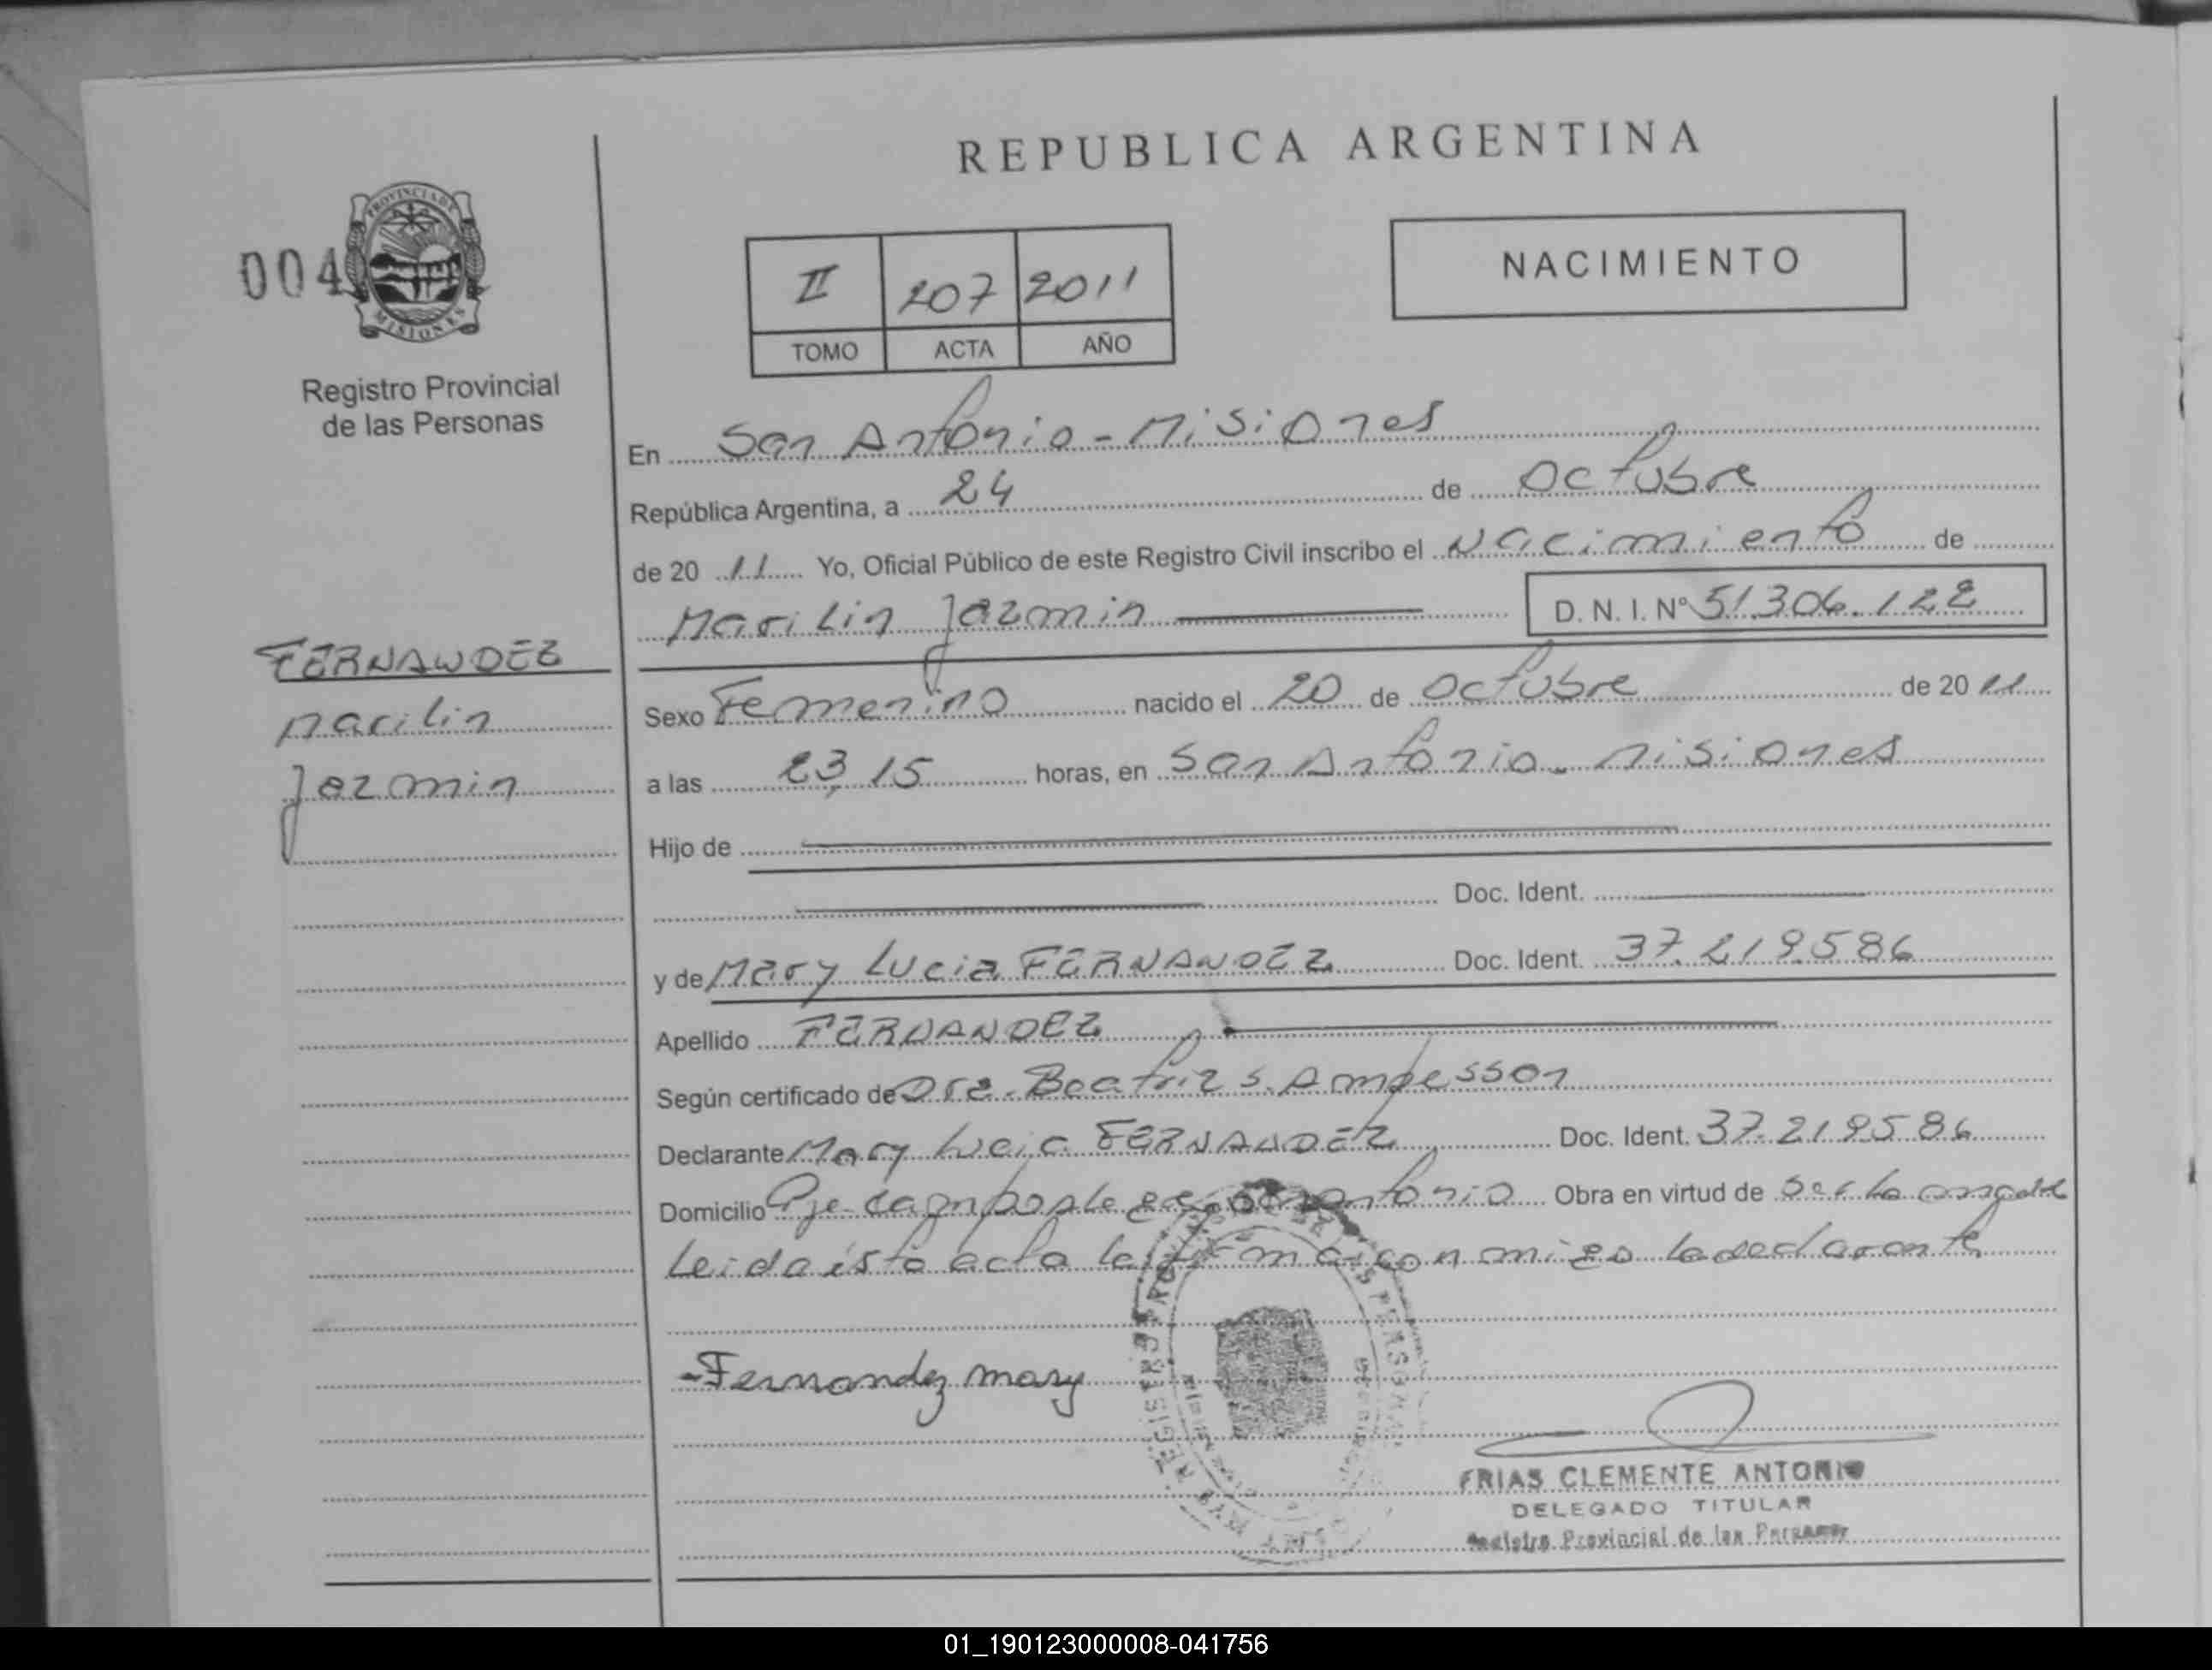 REPUBLICA ARGENTINA
PROVINCIA DE
MISIONES
004
Registro Provincial
de las Personas
II 207 2011
TOMO ACTA AÑO
NACIMIENTO
En San Antonio - Misiones
República Argentina, a 24 de Octubre
de 20 11 Yo, Oficial Público de este Registro Civil inscribo el Nacimiento de
Marilin Jazmin D. N. I. Nº 51306.122
FERNANDEZ
Marilin
Jazmin
Sexo Femenino nacido el 20 de Octubre de 20 11
a las 23,15 horas, en San Antonio - Misiones
Hijo de
Doc. Ident.
y de Mary Lucia FERNANDEZ Doc. Ident. 37.219.586
Apellido FERNANDEZ
Según certificado de Dra. Beatriz S. Ampesson
Declarante Mary Lucia FERNANDEZ Doc. Ident. 37.219586
Domicilio Pje San Antonio Obra en virtud de Ser la madre
Leida ésta acta la firma conmigo la declarante
- Fernandez mary
FRIAS CLEMENTE ANTONIO
DELEGADO TITULAR
Registro Provincial de las Personas
01_190123000008-041756